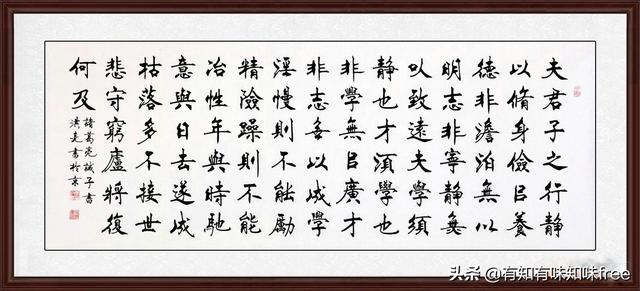 夫君子之行靜
以脩身儉㠯養
德非澹泊無以
明志非寧靜無
以致遠夫學須
靜也才須學也
非學無㠯廣才
非志無以成學
淫慢則不能勵
精險躁則不能
冶性年與時馳
意與日去遂成
枯落多不接世
悲守窮廬將復
何及
諸葛亮誡子書
洪亮書於京
头条 @有知有味知味free